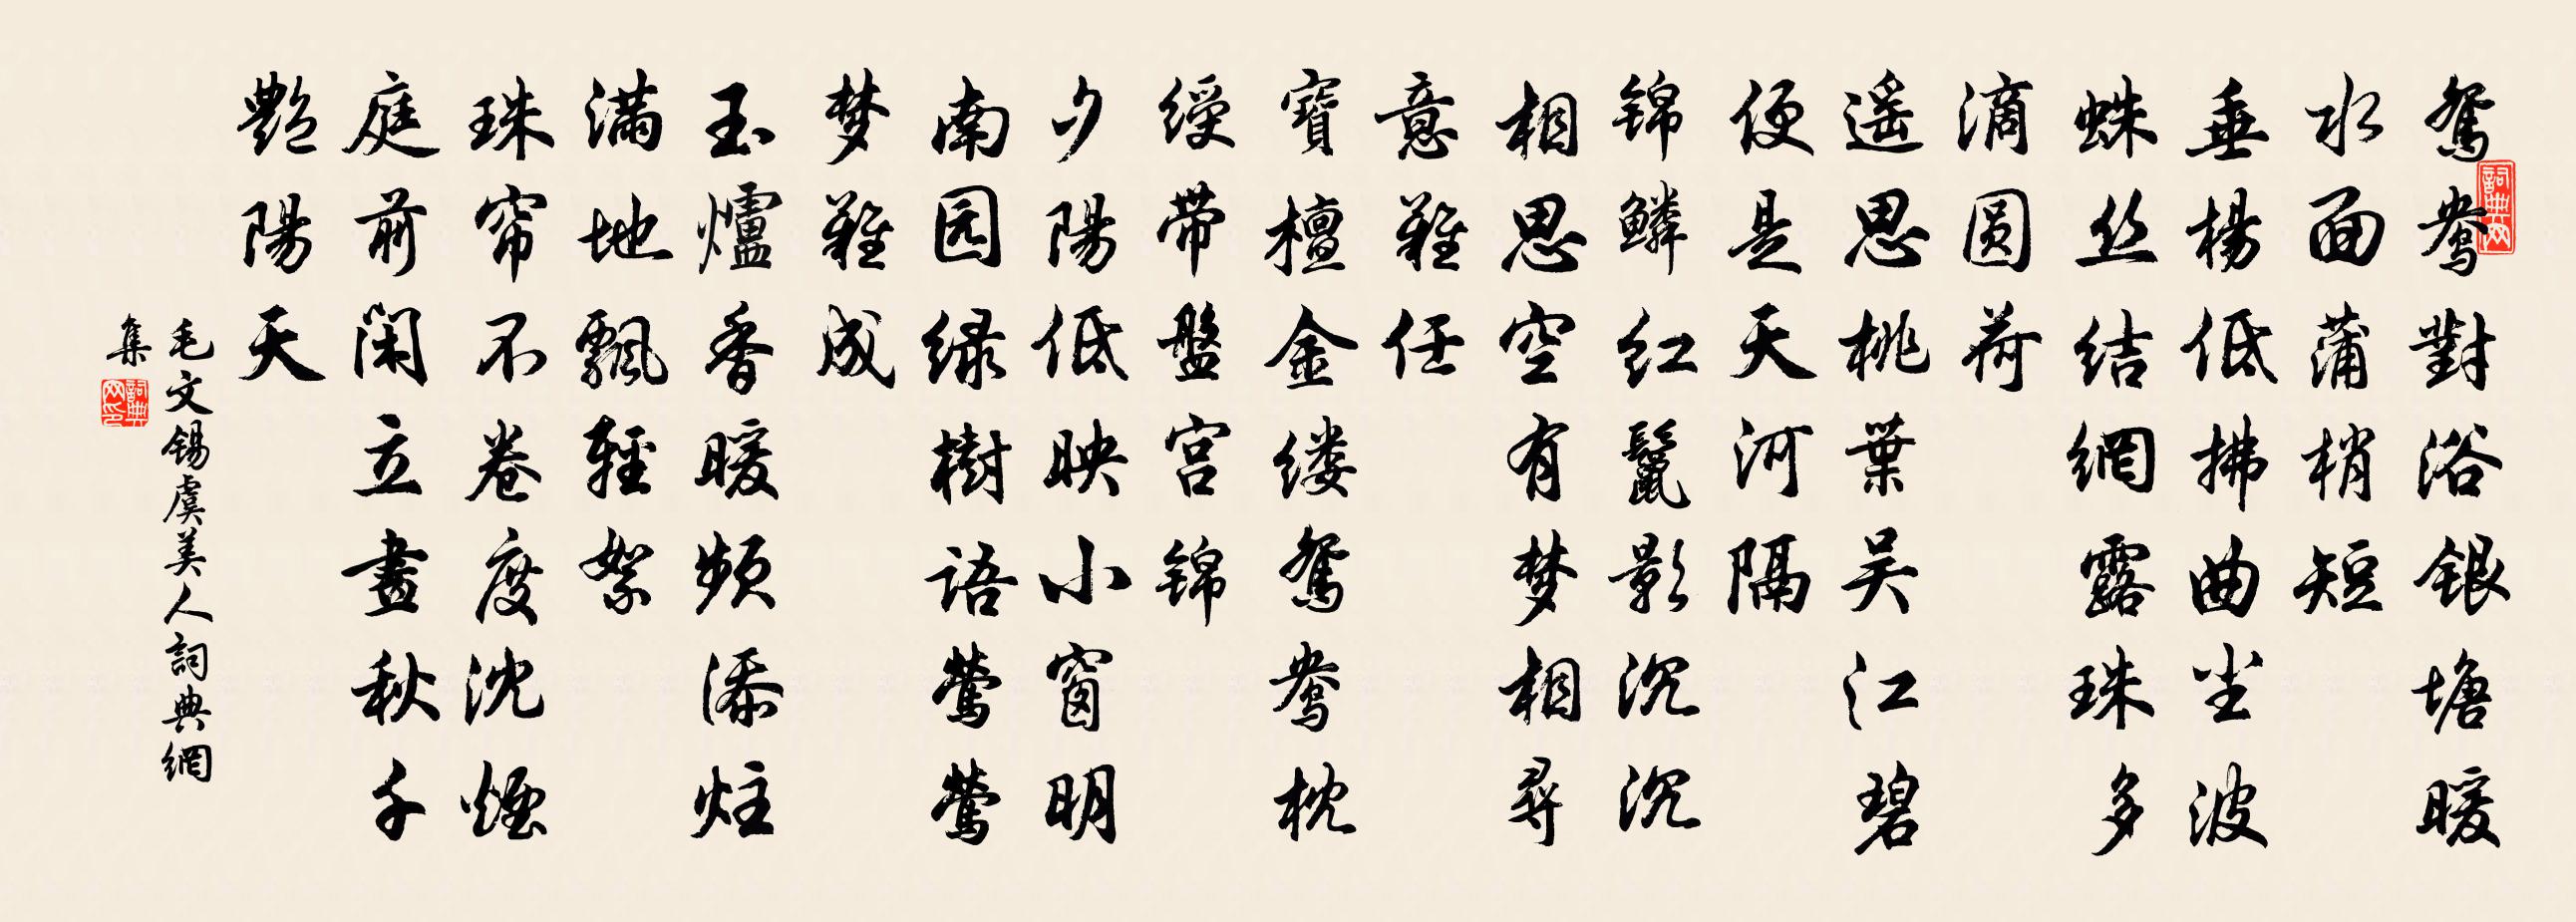 鸳鸯對浴銀塘暖
水面蒲梢短
垂楊低拂曲尘波
蛛丝结網露珠多
滴圆荷
遥思桃葉吴江碧
便是天河隔
锦鳞红鬣影沉沉
相思空有梦相尋
意難任
寶檀金缕鸳鸯枕
绶带盤宫锦
夕陽低映小窗明
南园绿樹語鶯鶯
梦難成
玉爐香暖频添炷
满地飄輕絮
珠帘不卷度沈煙
庭前闲立畫秋千
艷陽天
毛文錫虞美人詞典網
集
詞典网
詞典网印